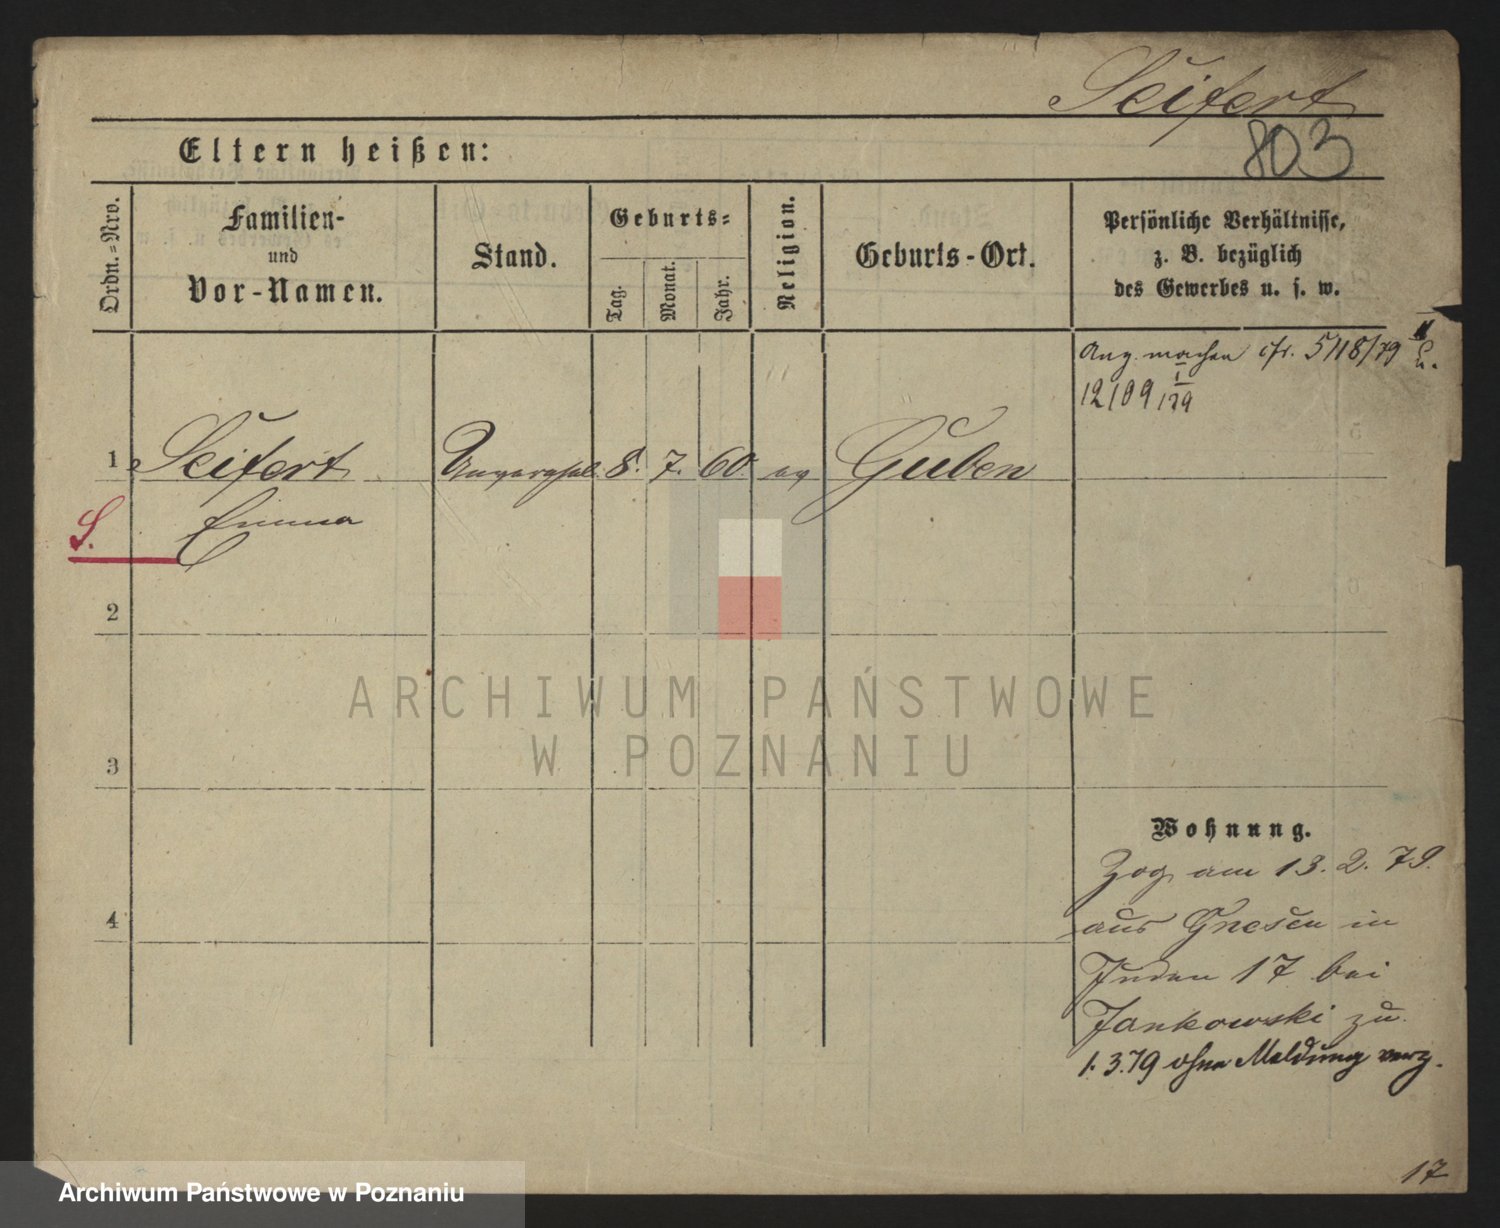 Seifert
803
Eltern heißen:
Ordn.-Nro.
Familien-
und
Vor-Namen.
Stand.
Geburts-
Tag.
Monat.
Jahr.
Religion.
Geburts-Ort.
Persönliche Verhältnisse,
z. B. bezüglich
des Gewerbes u. s. w.
Ang. machen cfr. 5118/79
12109
1 Seifert 8. 7. 60 ev Guben
S. Emma
2
3
4
ARCHIWUM PAŃSTWOWE
W POZNANIU
Wohnung.
Zog am 13.2.79.
aus Gnesen in
Juden 17 bei
Jankowski zu.
1.3.79 ohne Meldung verz.
17
Archiwum Państwowe w Poznaniu